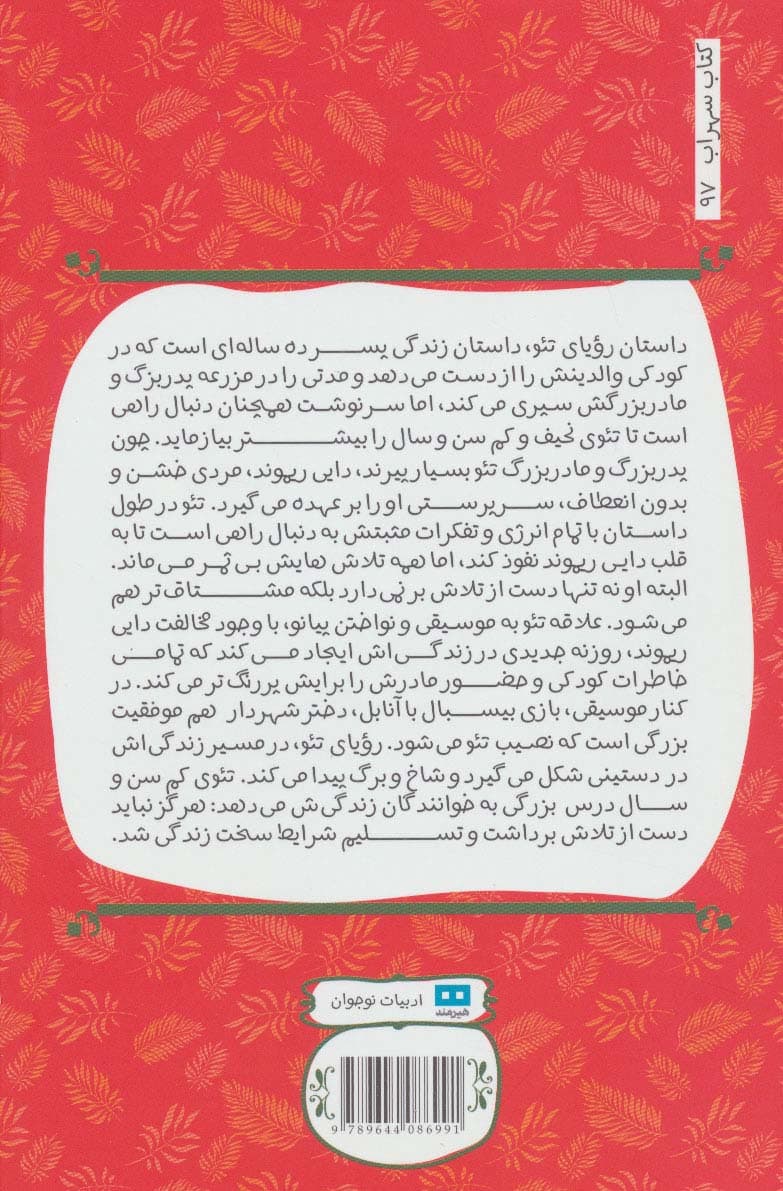 کتاب سهراب ۹۷
داستان رؤیای تئو، داستان زندگی پسر ده ساله‌ای است که در
کودکی والدینش را از دست می‌دهد و مدتی را در مزرعه پدربزگ و
مادربزرگش سپری می‌کند، اما سرنوشت همچنان دنبال راهی
است تا تئوی نحیف و کم سن و سال را بیشتر بیازماید. چون
پدربزرگ و مادربزرگ تئو بسیار پیرند، دایی ریموند، مردی خشن و
بدون انعطاف، سرپرستی او را بر عهده می‌گیرد. تئو در طول
داستان با تمام انرژی و تفکرات مثبتش به دنبال راهی است تا به
قلب دایی ریموند نفوذ کند، اما همه تلاش هایش بی ثمر می‌ماند.
البته او نه تنها دست از تلاش بر نمی‌دارد بلکه مشتاق تر هم
می‌شود. علاقه تئو به موسیقی و نواختن پیانو، با وجود مخالفت دایی
ریموند، روزنه جدیدی در زندگی‌اش ایجاد می‌کند که تمامی
خاطرات کودکی و حضور مادرش را برایش پررنگ تر می‌کند. در
کنار موسیقی، بازی بیسبال با آنابل، دختر شهردار هم موفقیت
بزرگی است که نصیب تئو می‌شود. رؤیای تئو، در مسیر زندگی‌اش
در دستینی شکل می‌گیرد و شاخ و برگ پیدا می‌کند. تئوی کم سن و
سال درس بزرگی به خوانندگان زندگی‌ش می‌دهد: هرگز نباید
دست از تلاش برداشت و تسلیم شرایط سخت زندگی شد.
هیرمند ادبیات نوجوان
9 789644 086991